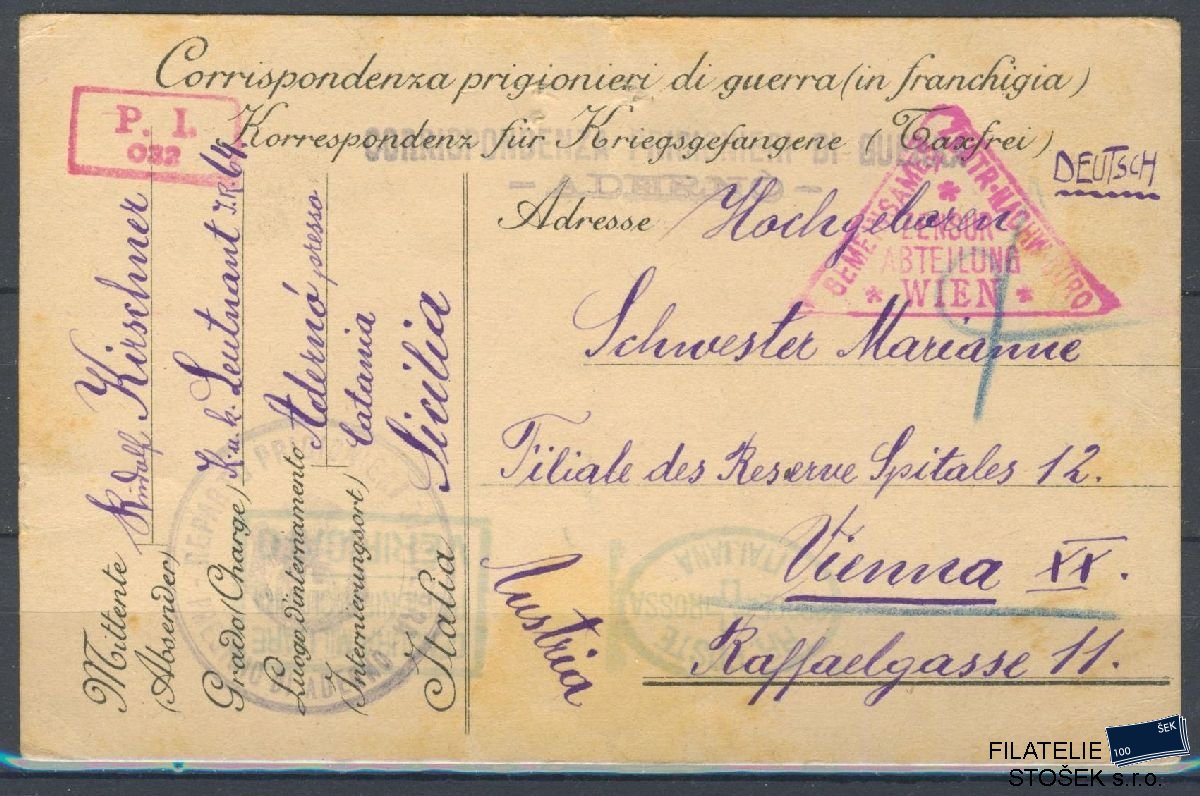 Corrispondenza prigionieri di guerra (in franchigia)
Korrespondenz für Kriegsgefangene (Taxfrei)
P. I.
032
CORRISPONDENZA PRIGIONIERI DI GUERRA
GEMEINSAMES ZENTR-NACHW-BÜRO
ZENSUR
ABTEILUNG
WIEN
DEUTSCH
Adresse Hochgeboren
Schwester Marianne
Filiale des Reserve Spitales 12.
Vienna XX.
Raffaelgasse 11.
Austria
Mittente Rudolf Kirschner
(Absender)
Grado (Charge) K.u.k. Leutnant I.R. 64
Luogo d'internamento Adernó presso
(Internierungsort) Catania
Sicilia
Italia
VERIFICATO
ITALIANA
ROSSA
FILATELIE
STOŠEK s.r.o.
100 ŠEK